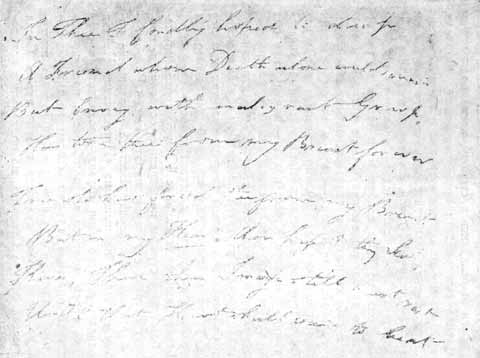 In Thee I fondly hoped to clasp
A Friend whom Death alone could sever
But Envy with malignant Grasp,
Has torn thee from my Breast for ever
True she has forced thee from my Breast
But in my Heart thou keep'st thy seat
There, There thine Image still must rest
Until that Heart shall cease to beat -